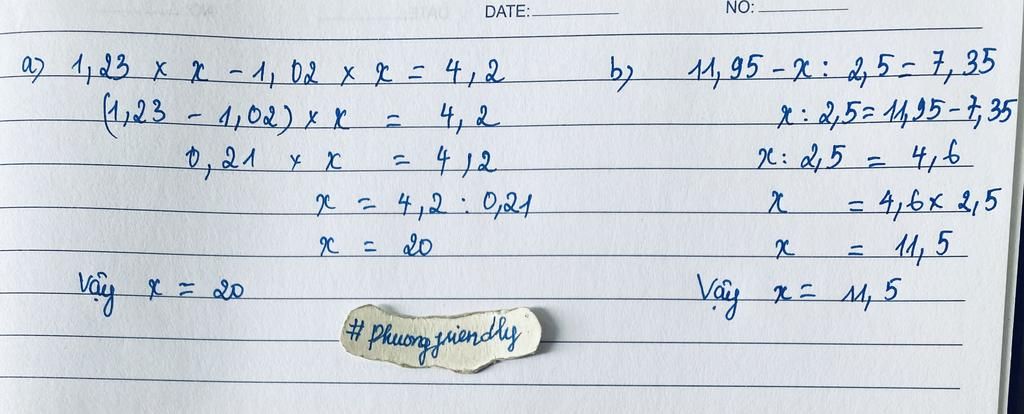 DATE:
NO:
a) 1,23 x x - 1,02 x x = 4,2
(1,23 - 1,02) x x = 4,2
0,21 x x = 4,2
x = 4,2 : 0,21
x = 20
Vậy x = 20
b) 11,95 - x : 2,5 = 7,35
x : 2,5 = 11,95 - 7,35
x : 2,5 = 4,6
x = 4,6 x 2,5
x = 11,5
Vậy x = 11,5
#Phuongfriendly